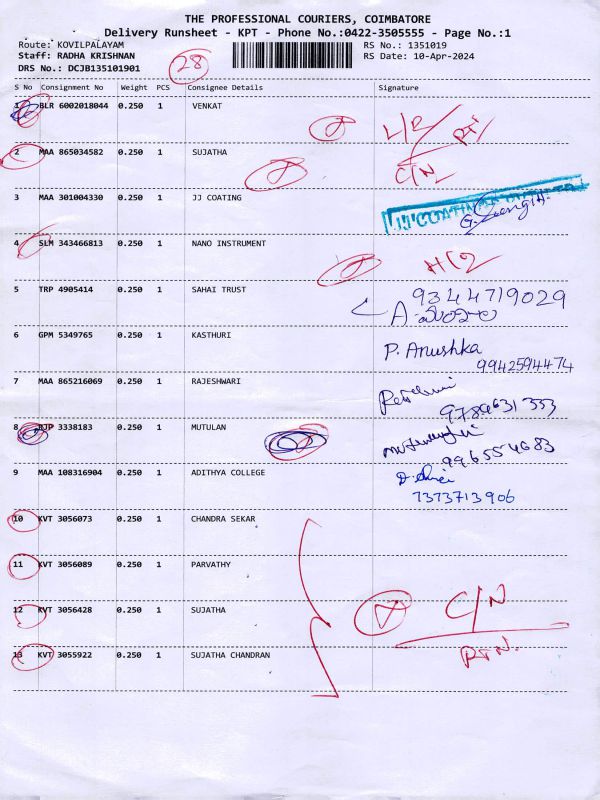 THE PROFESSIONAL COURIERS, COIMBATORE
Delivery Runsheet - KPT - Phone No.:0422-3505555 - Page No.:1
Route: KOVILPALAYAM
RS No.: 1351019
Staff: RADHA KRISHNAN
RS Date: 10-Apr-2024
DRS No.: DCJB135101901
28
S No Consignment No Weight PCS Consignee Details Signature
1 BLR 6002018044 0.250 1 VENKAT
2 MAA 865034582 0.250 1 SUJATHA
C/N
3 MAA 301004330 0.250 1 JJ COATING
4 SLM 343466813 0.250 1 NANO INSTRUMENT
5 TRP 4905414 0.250 1 SAHAI TRUST
9344719029
6 GPM 5349765 0.250 1 KASTHURI
P. Anushka
9942594474
7 MAA 865216069 0.250 1 RAJESHWARI
9789631333
8 DJP 3338183 0.250 1 MUTULAN
9965554683
9 MAA 108316904 0.250 1 ADITHYA COLLEGE
7373713906
10 KVT 3056073 0.250 1 CHANDRA SEKAR
11 KVT 3056089 0.250 1 PARVATHY
12 KVT 3056428 0.250 1 SUJATHA
C/N
13 KVT 3055922 0.250 1 SUJATHA CHANDRAN
RTN.